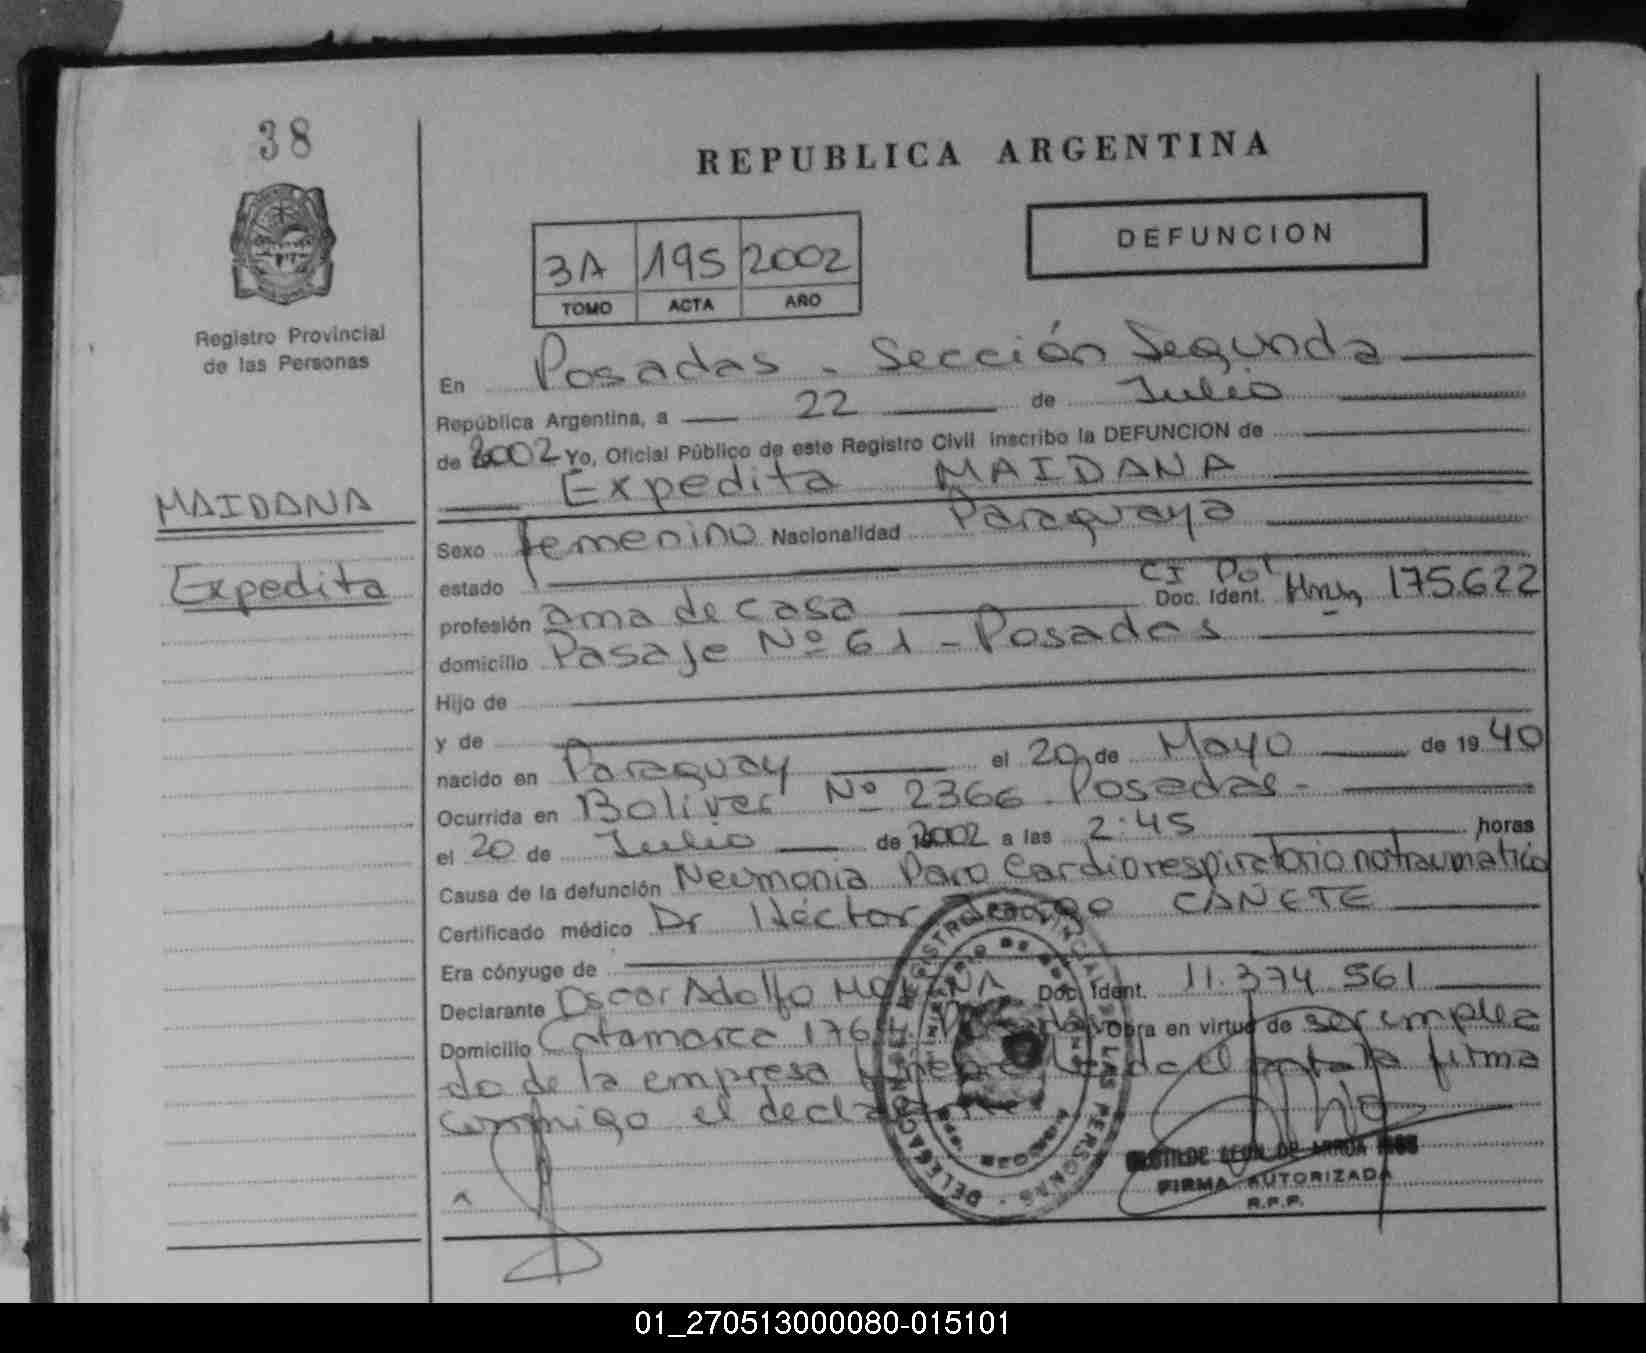 38
REPUBLICA ARGENTINA
DEFUNCION
3A 195 2002
TOMO ACTA AÑO
Registro Provincial
de las Personas
En Posadas - Sección Segunda
República Argentina, a 22 de Julio
de 2002 Yo, Oficial Público de este Registro Civil inscribo la DEFUNCION de
Expedita MAIDANA
MAIDANA
Expedita
Sexo Femenino Nacionalidad Paraguaya
estado CI Pol
profesión ama de casa Doc. Ident. Mnes 175.622
domicilio Pasaje Nº 61 - Posadas
Hijo de
y de
nacido en Paraguay el 20 de Mayo de 1940
Ocurrida en Bolivar Nº 2366 - Posadas -
el 20 de Julio de 2002 a las 2:45 horas
Causa de la defunción Neumonia Paro Cardiorespiratorio no traumatico
Certificado médico Dr Héctor CAÑETE
Era cónyuge de
Declarante Oscar Adolfo Doc. Ident. 11.374.561
Domicilio Catamarca Obra en virtud de ser emplea
do de la empresa el acta la firma
conmigo el
REGISTRO PROVINCIAL DE LAS PERSONAS
FIRMA AUTORIZADA
R.P.P.
01_270513000080-015101